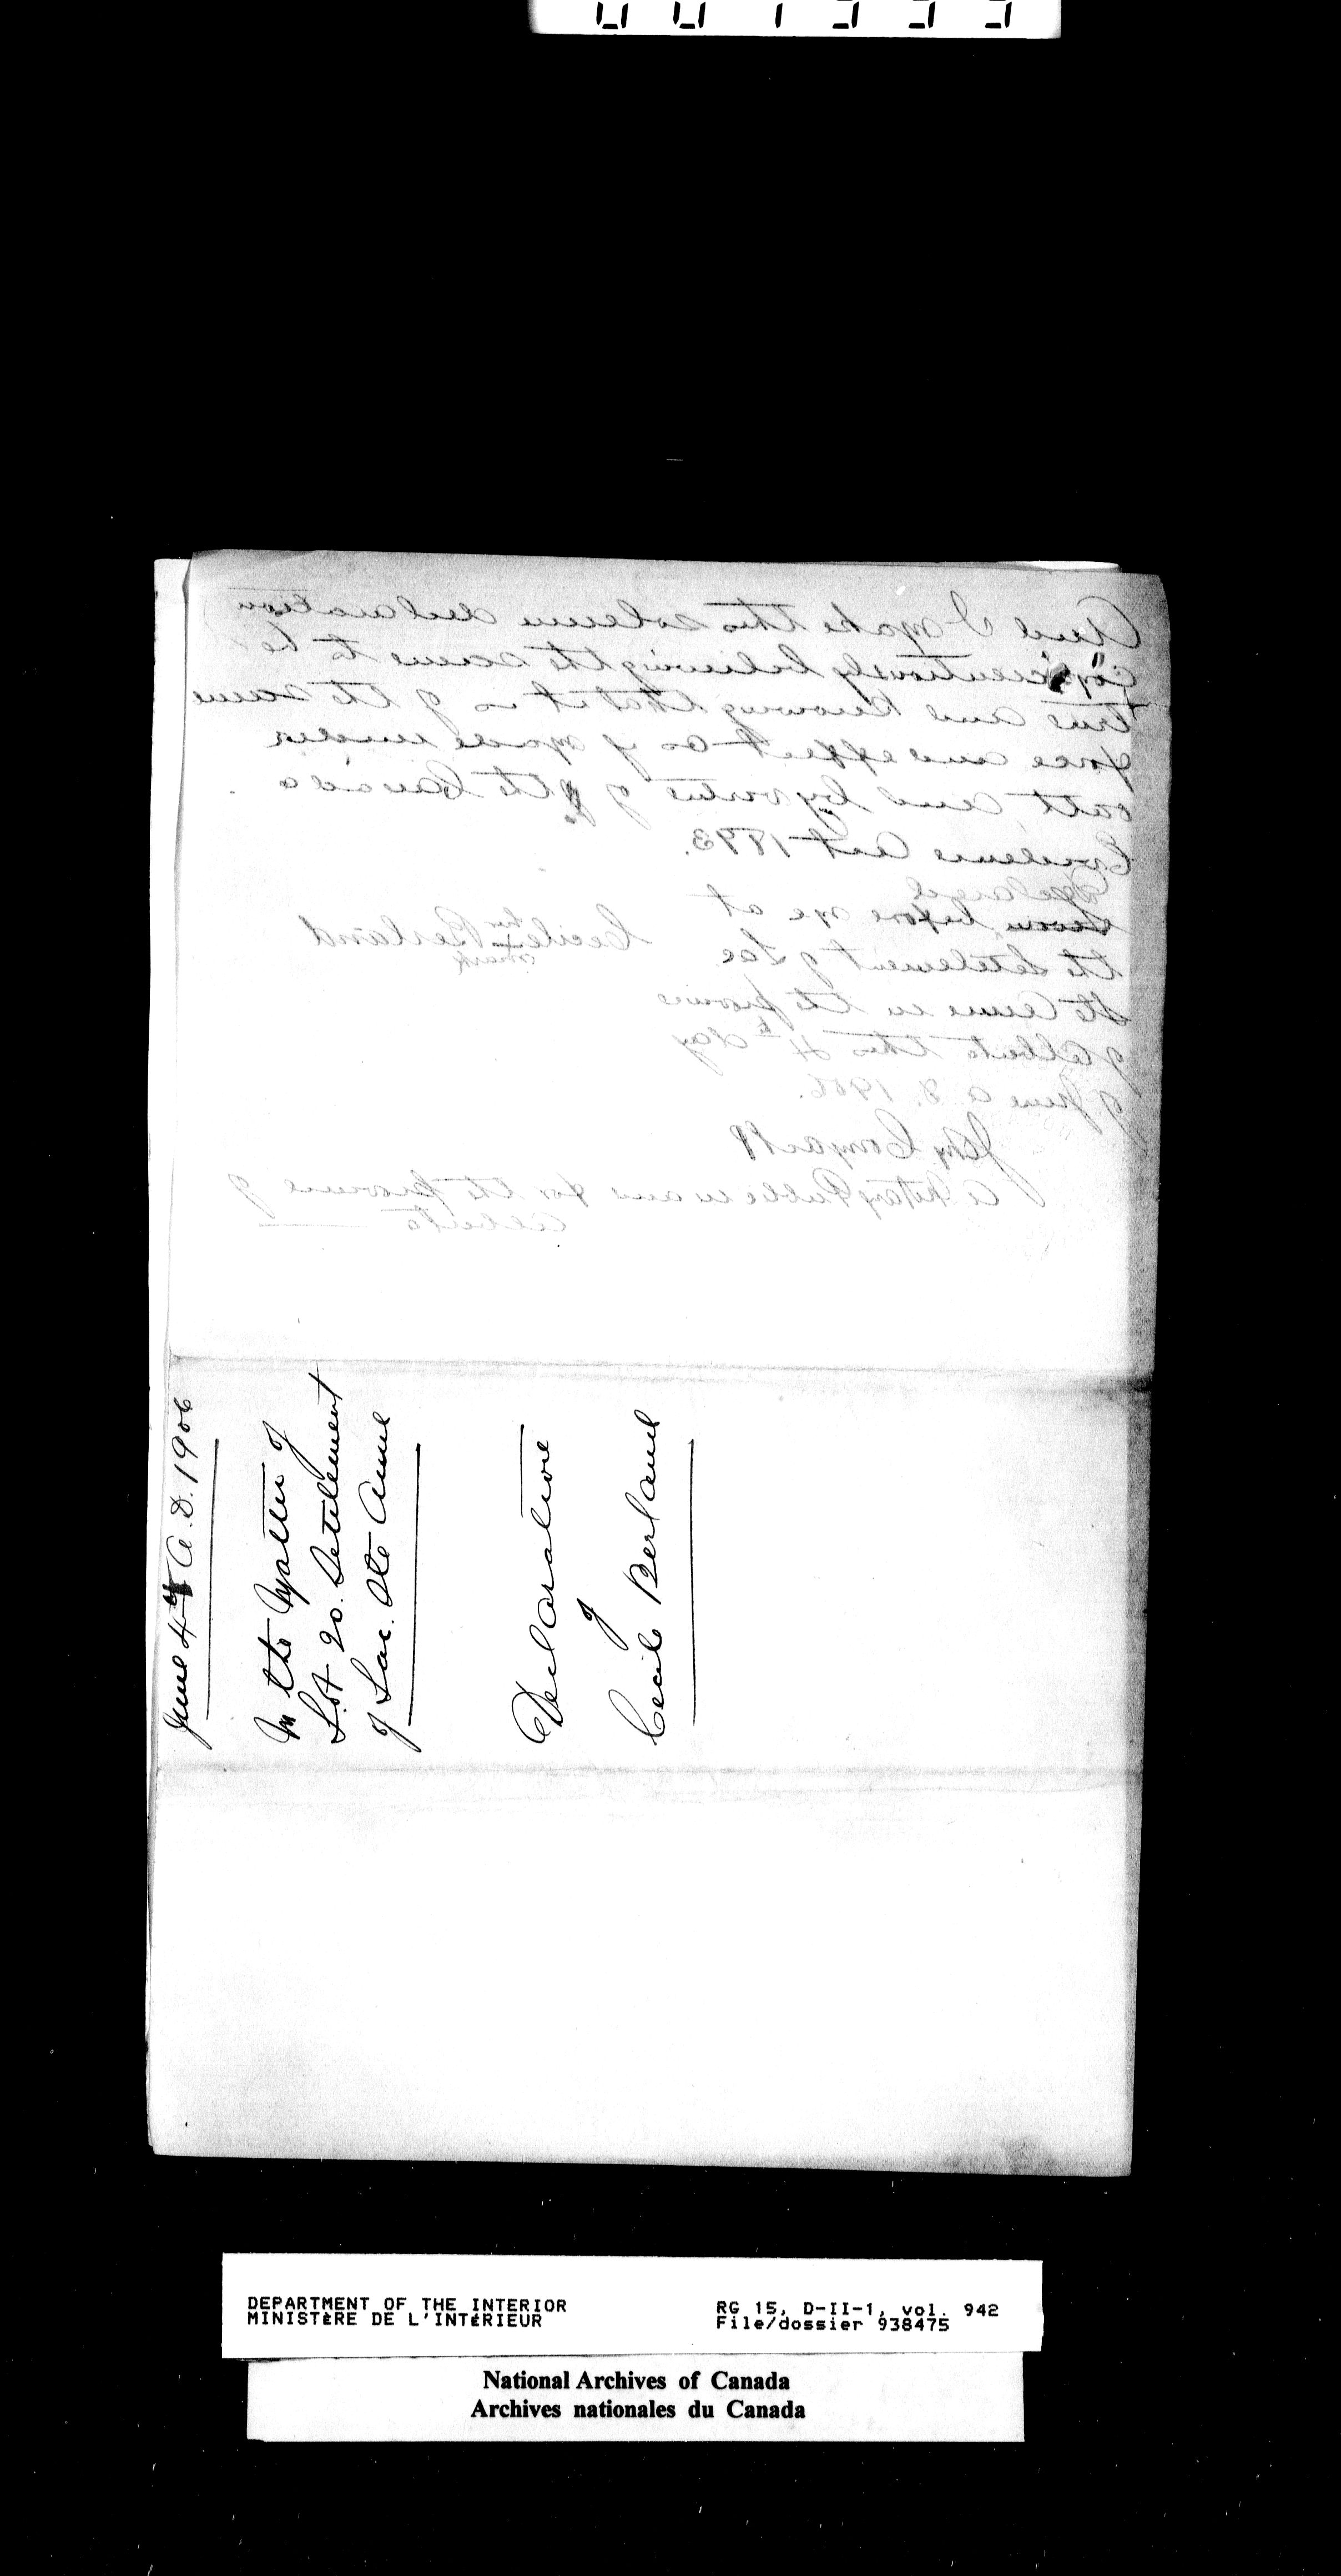 And I make this solemn declaration
conscientiously believing the same to be
true and knowing that it is of the same
force and effect as if made under
oath and by virtue of the Canada
Evidence Act 1893.
Declared
before me at
the Settlement of Lac
Ste Anne in the province
of Alberta this 4th day
of June A.D. 1906.
Cecile her x mark Berland
A Notary Public in and for the province of
Alberta
June 4th A.D. 1906
In the Matter of
Lot 20. Settlement
of Lac. Ste Anne
Declaration
of
Cecile Berland
DEPARTMENT OF THE INTERIOR
MINISTÈRE DE L'INTÉRIEUR
RG 15, D-II-1, vol. 942
File/dossier 938475
National Archives of Canada
Archives nationales du Canada